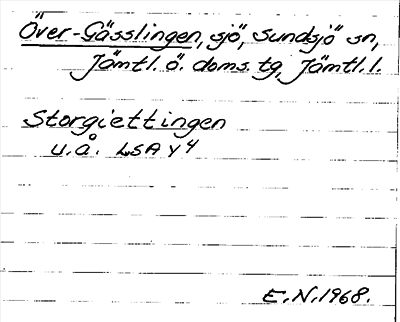 Över-Gässlingen, sjö, Sundsjö sn,
Jämtl. ö. doms. tg, Jämtl. l.
Storgiettingen
u.å. LSA Y4
E.N. 1968.